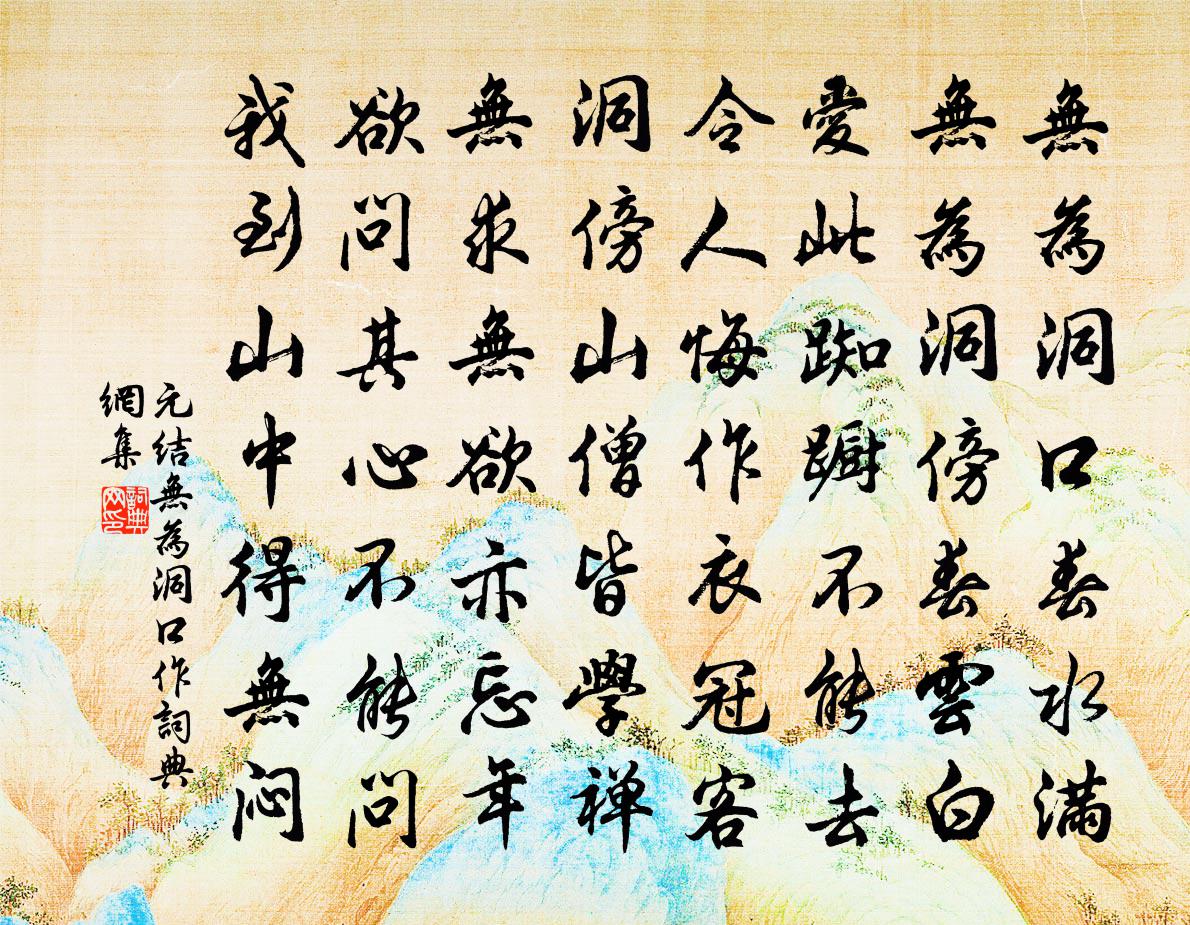 無為洞口春水滿
無為洞傍春雲白
愛此踟躕不能去
令人悔作衣冠客
洞傍山僧皆學禅
無求無欲亦忘年
欲問其心不能問
我到山中得無悶
元結無為洞口作詞典
網集
詞典
网印